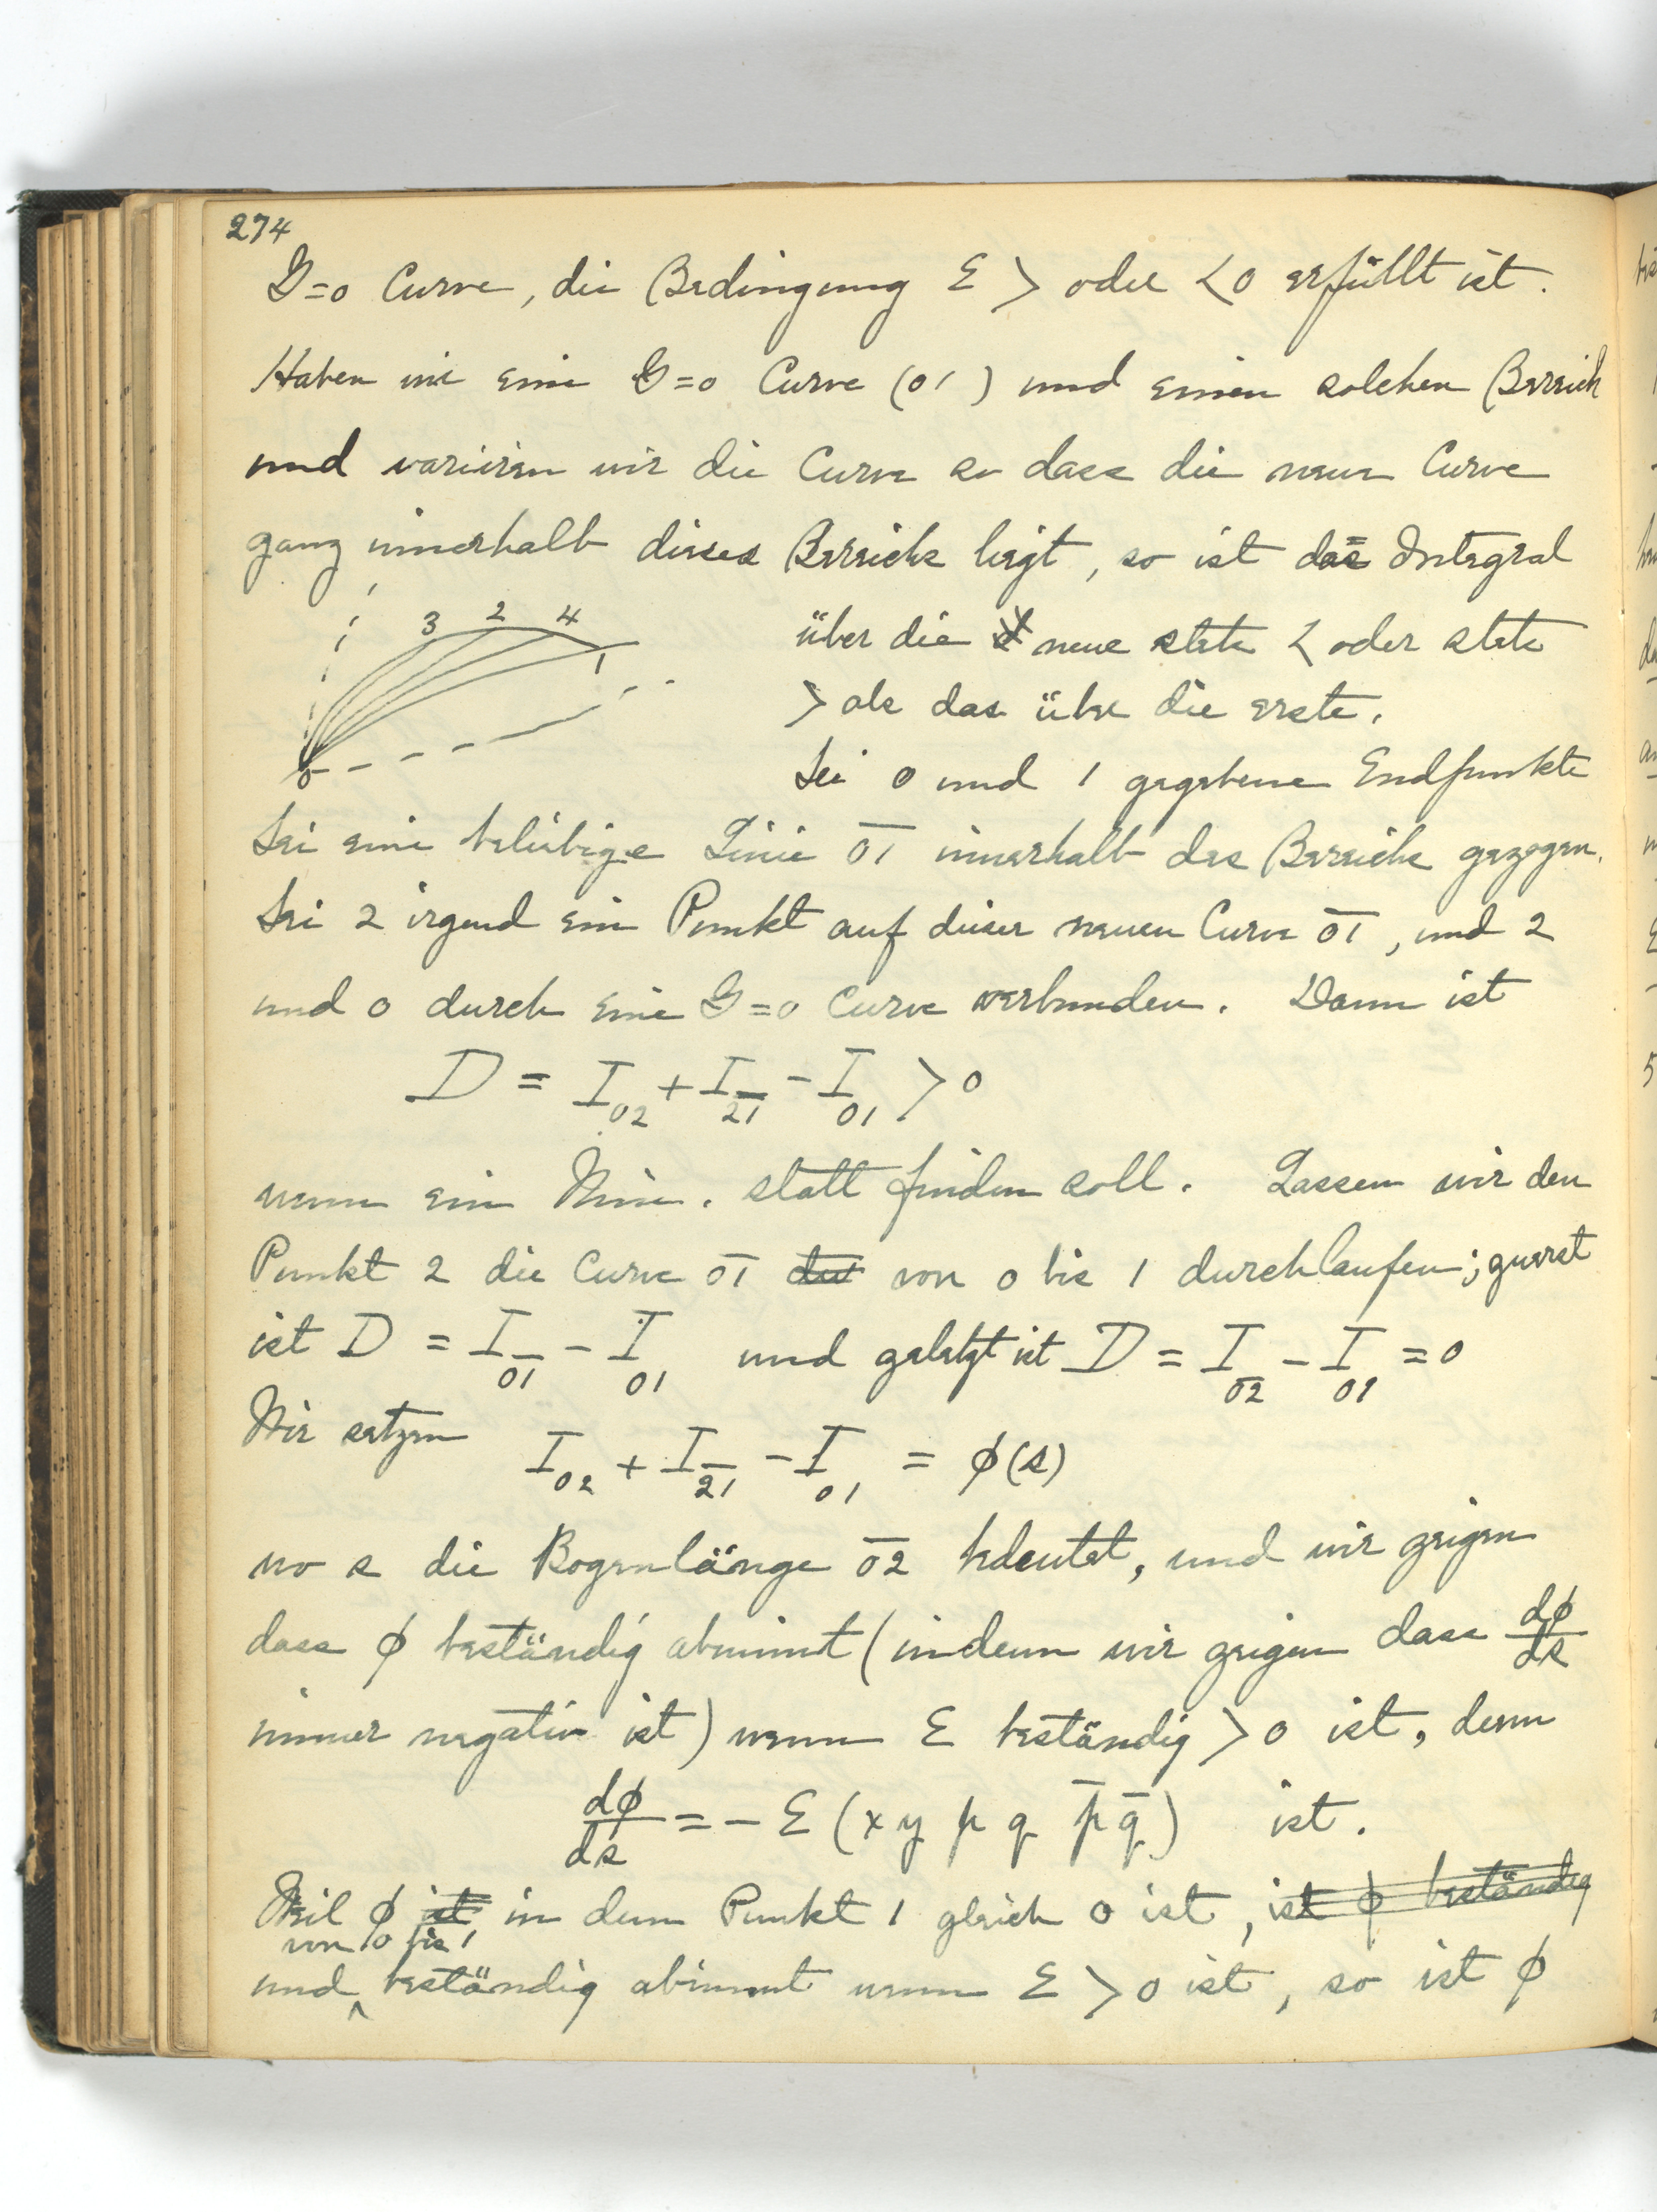 274
G=0 Curve, die Bedingung E > oder < 0 erfüllt ist.
Haben wir eine G=0 Curve (01) und einen solchen Bereich
und variiren wir die Curve so dass die neue Curve
ganz innerhalb dieses Bereichs liegt, so ist das Integral
3 2 4
1
0
über die neue stets < oder stets
> als das über die erste.
Sei 0 und 1 gegebene Endpunkte
Sei eine beliebige Linie 0̅1̅ innerhalb des Bereichs gezogen.
Sei 2 irgend ein Punkt auf dieser neuen Curve 0̅1̅, und 2
und 0 durch eine G=0 Curve verbunden. Dann ist
D = I₀₂ + I_2̅1̅ - I₀₁ > 0
wenn ein Min. statt finden soll. Lassen wir den
Punkt 2 die Curve 0̅1̅ von 0 bis 1 durchlaufen; zuerst
ist D = I_0̅1̅ - I₀₁ und zuletzt ist D = I₀₂ - I₀₁ = 0
Wir setzen I₀₂ + I_2̅1̅ - I₀₁ = ϕ(s)
wo s die Bogenlänge 0̅2̅ bedeutet, und wir zeigen
dass ϕ beständig abnimt (indem wir zeigen dass dϕ/ds
immer negativ ist) wenn E beständig > 0 ist, denn
dϕ/ds = - E (x y p q p̅ q̅) ist.
Weil ϕ ist in dem Punkt 1 gleich 0 ist, ist ϕ beständig
von 0 bis 1
und beständig abnimmt wenn E > 0 ist, so ist ϕ